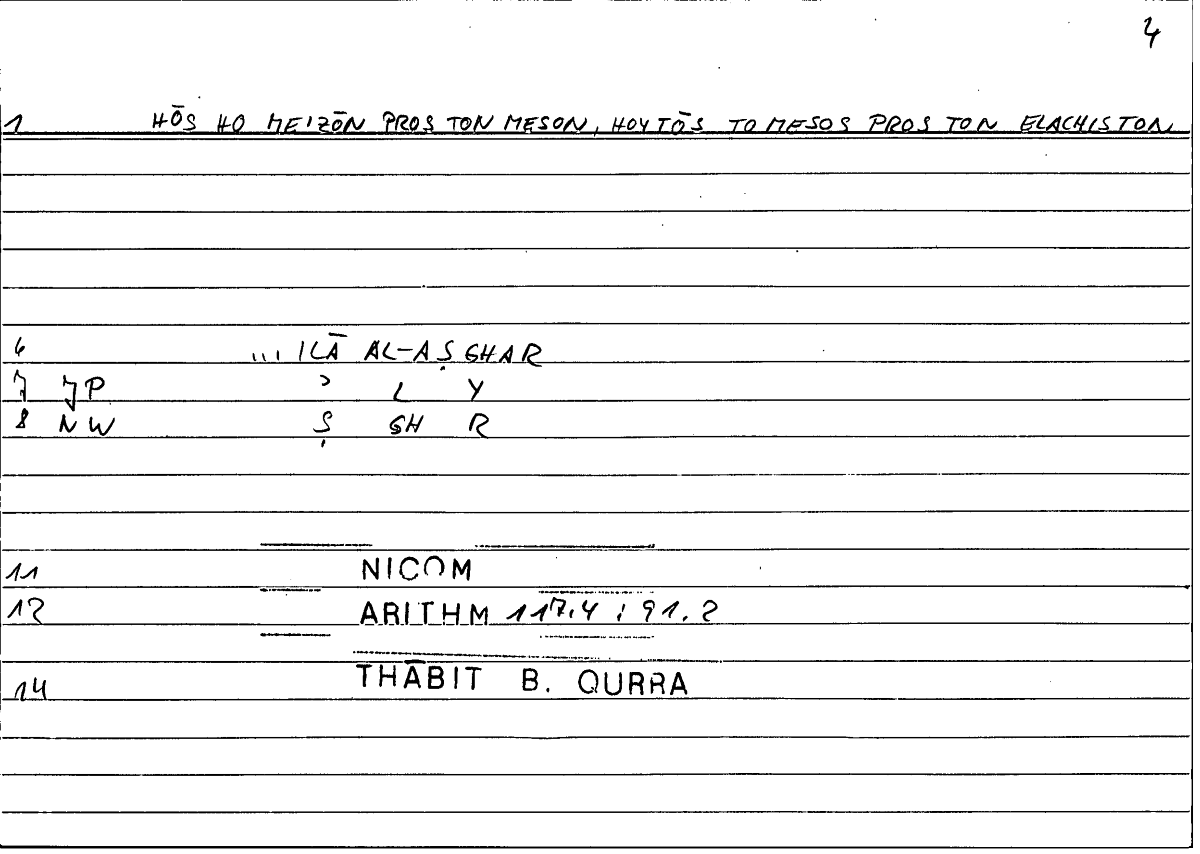 4
1 HŌS HO MEIZŌN PROS TON MESON, HOYTŌS TO MESOS PROS TON ELACHISTON
6 ... ILĀ AL-AṢGHAR
7 JP ʾ L Y
8 NW Ṣ GH R
11 NICOM
12 ARITHM 117.4 ; 91.2
14 THĀBIT B. QURRA